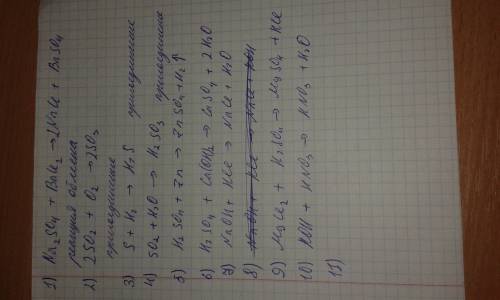 1) Na₂SO₄ + BaCl₂ → 2NaCl + BaSO₄
реакция обмена
2) 2SO₂ + O₂ → 2SO₃
присоединение
3) S + H₂ → H₂S присоединение
4) SO₂ + H₂O → H₂SO₃ присоединение
5) H₂SO₄ + Zn → ZnSO₄ + H₂↑
6) H₂SO₄ + Ca(OH)₂ → CaSO₄ + 2H₂O
7) NaOH + HCl → NaCl + H₂O
8)
9) MgCl₂ + K₂SO₄ → MgSO₄ + KCl
10) KOH + HNO₃ → KNO₃ + H₂O
11)